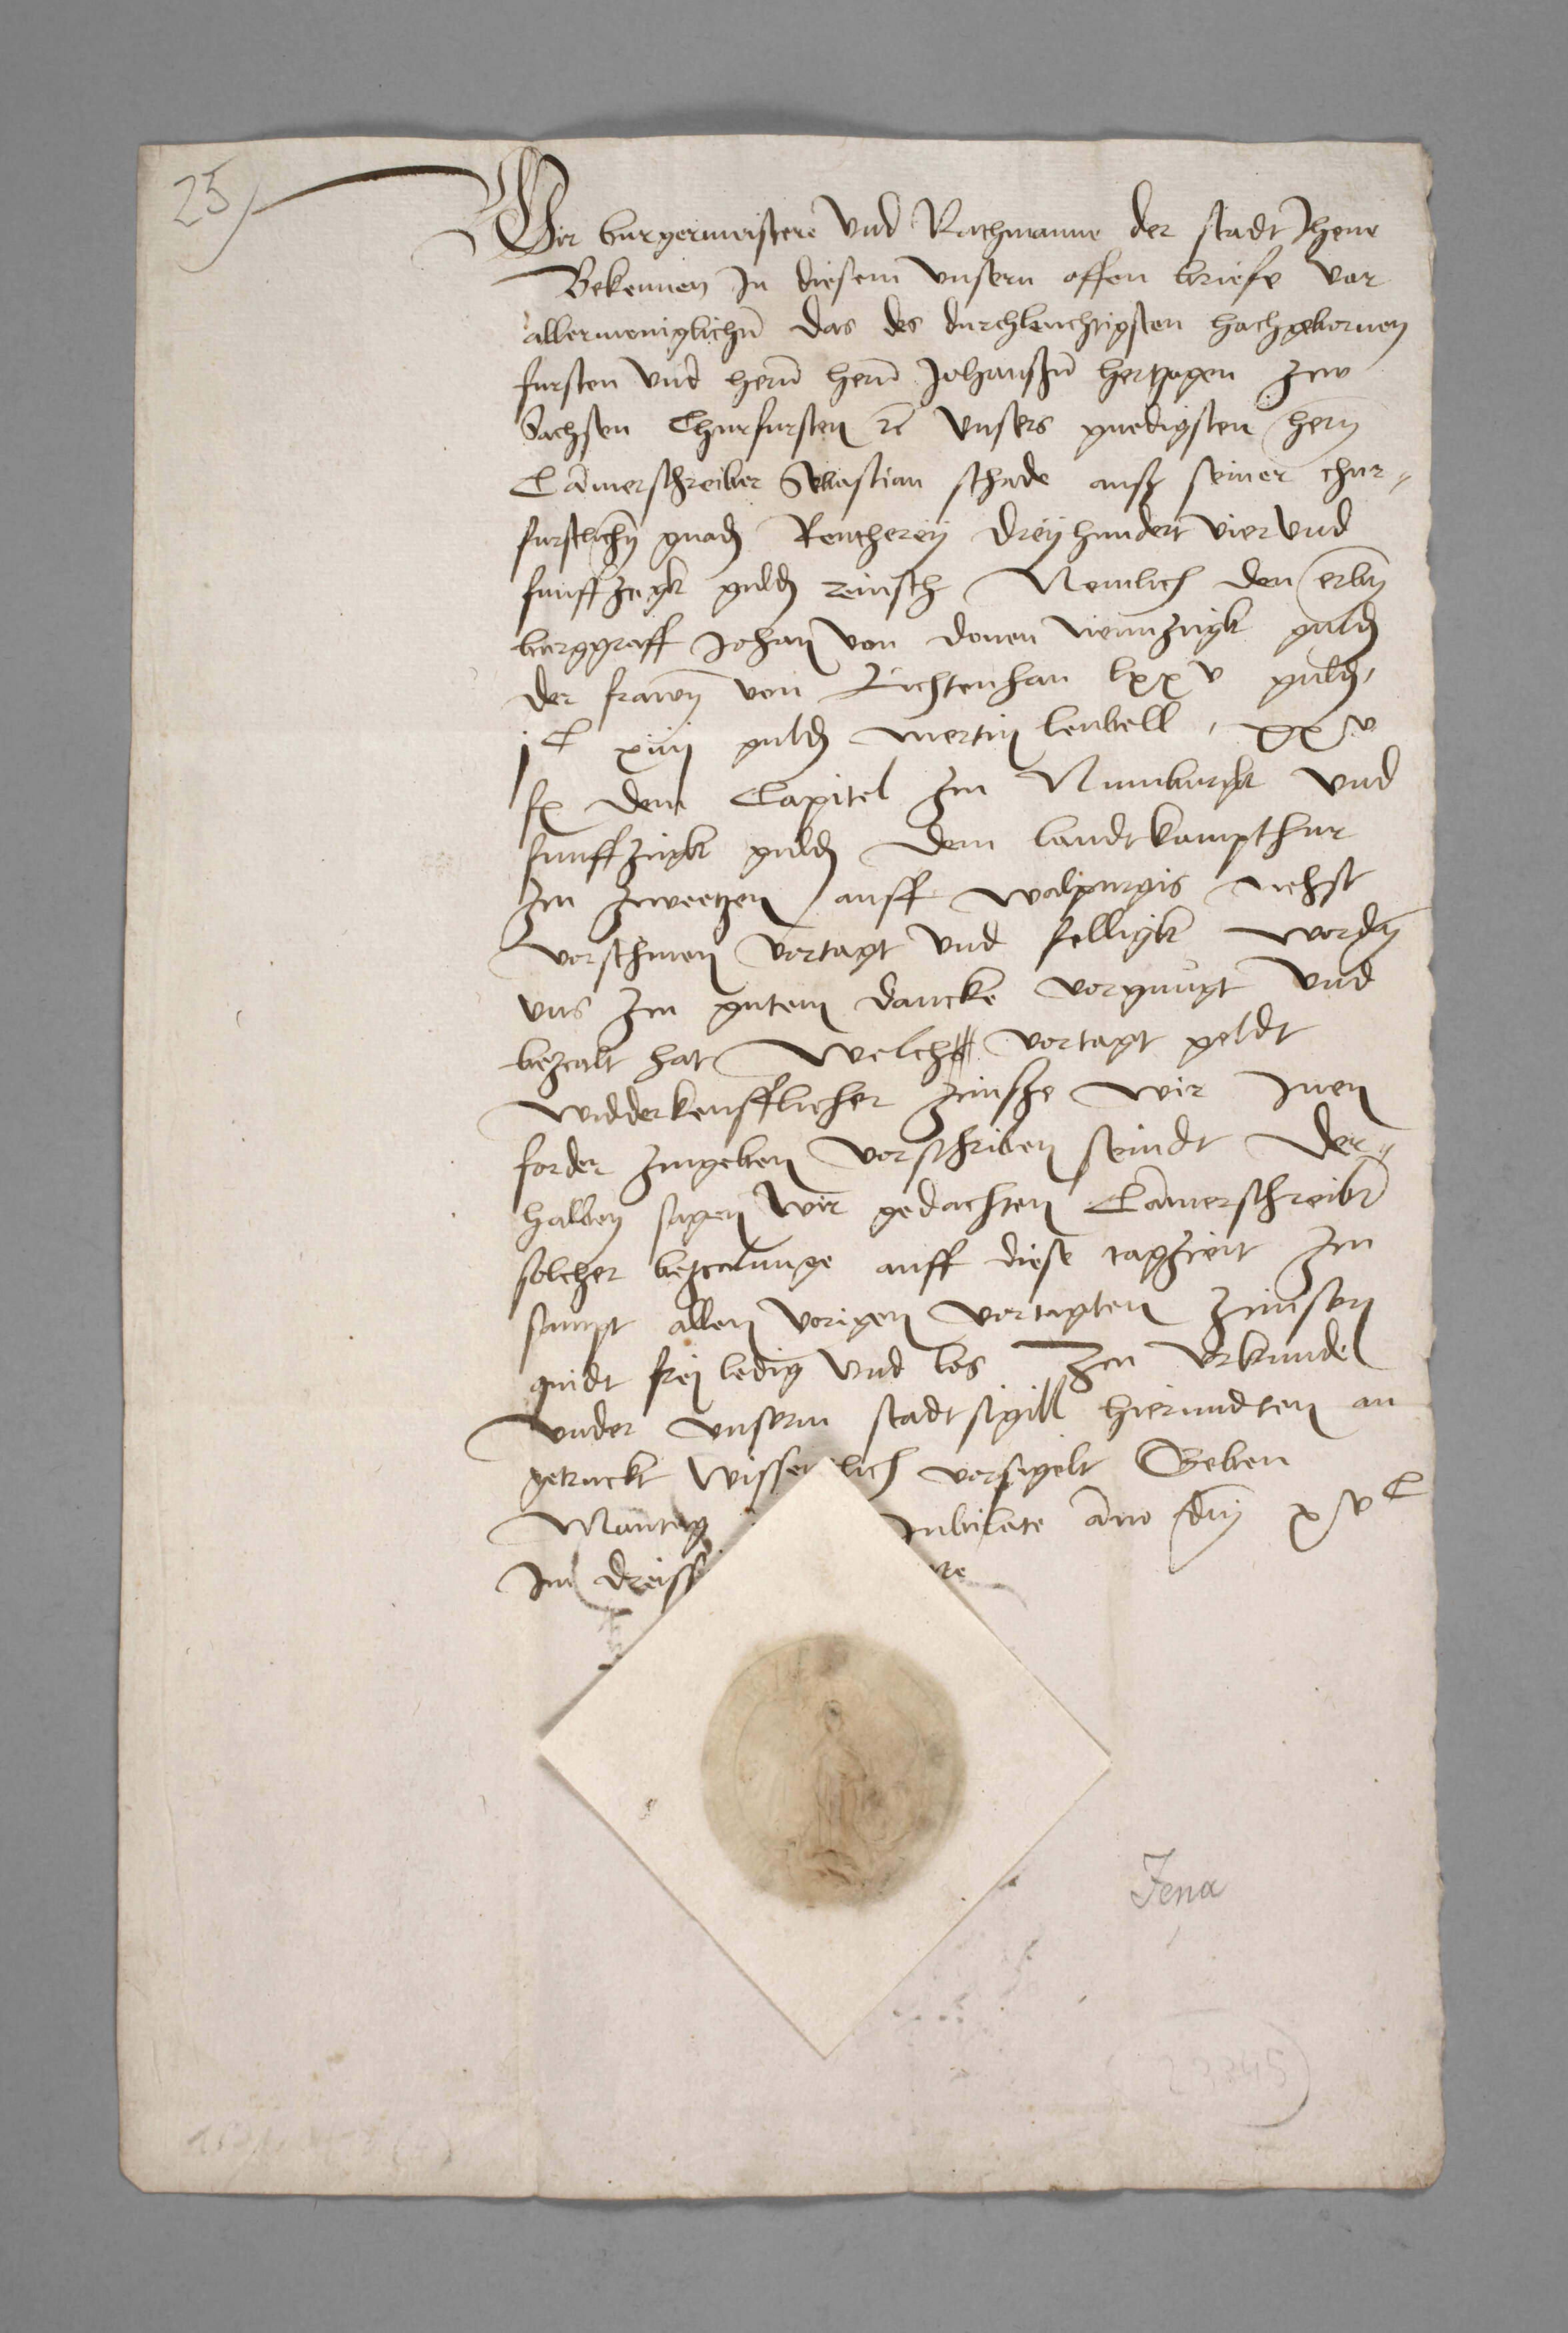 25
Wir burgermeistere Und Rathmanne der stadt Jhene
Bekennen In diesem unsern offen briefe vor
allermeniglichn̄ das des durchleuchtigsten hochgebornen
fursten und hern̄ hern̄ Johanszn̄ hertzogen zcu
Sachsen Churfursten ꝛc unsers gnedigsten hern
Cam̄erschreiber Sebastian schade ausz seiner chur„
furstlichn̄ gnadn̄ Rentherey dreyhundert vierund
funffzcigk guldn̄ reinisch Nemlich den erbn̄
burggraff Johan von donen neunzcigk guldn̄
der frawn̄ von Lichtenhan lxxv guldn̄,
jC xiiij guldn̄ mertin leubell, xxv
fl dem Capitel zcu Numburgk und
funffzcigk guldn̄ dem landtkompthur
zcu zcwetzen auff walpurgis nehst
vorschinen vortagt und felligk wordn̄
uns zcu gutem dancke vorgnugt und
bezcalt hat Welch vortagt geldt
widderkeufflicher zcinsze wir Inen
forder zcugeben vorschriben seindt der„
halben sagen wir gedachten Cam̄erschreibr̄
solcher bezcalunge auff diese tagzceit zcu
sampt allen vorigen vortagten zcinsen
quidt frej ledig und los Zcu urkunde
under unserm stadtsigill hierundten an
getruckt Wissentlich vorsigelt Geben
Montag Jubilate an̄o dn̄j xvC
Im dreiss re
Jena